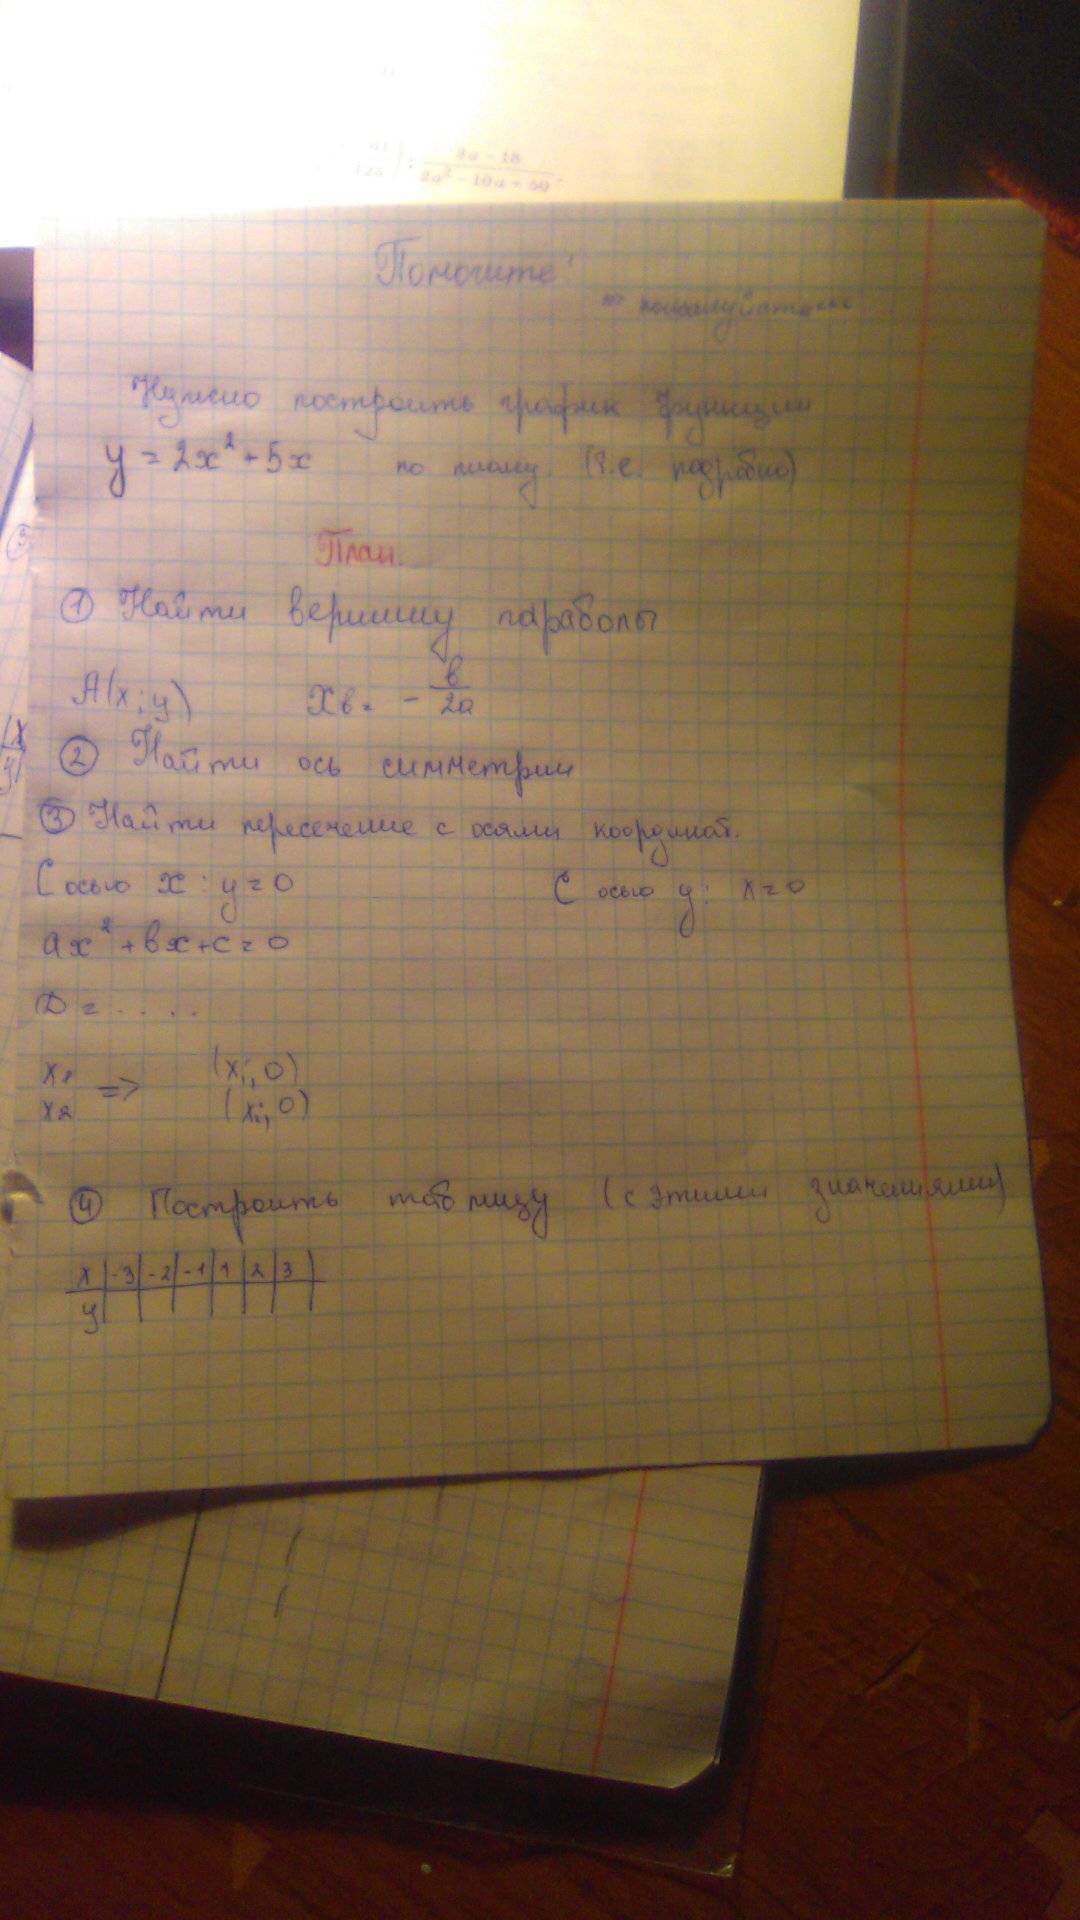 3a - 18
2a² - 10a + 50
Помогите!
пожалуйста
Нужно построить график функции
y = 2x² + 5x по плану. (т.е. подробно)
План.
① Найти вершину параболы
A(x; y) Xв = - в/2a
② Найти ось симметрии
③ Найти пересечение с осями координат.
С осью x: y = 0 С осью y: x = 0
ax² + вx + c = 0
D = .....
x₁ => (x₁; 0)
x₂ (x₂; 0)
④ Построить таблицу (с этими значениями)
x | -3 | -2 | -1 | 1 | 2 | 3
y